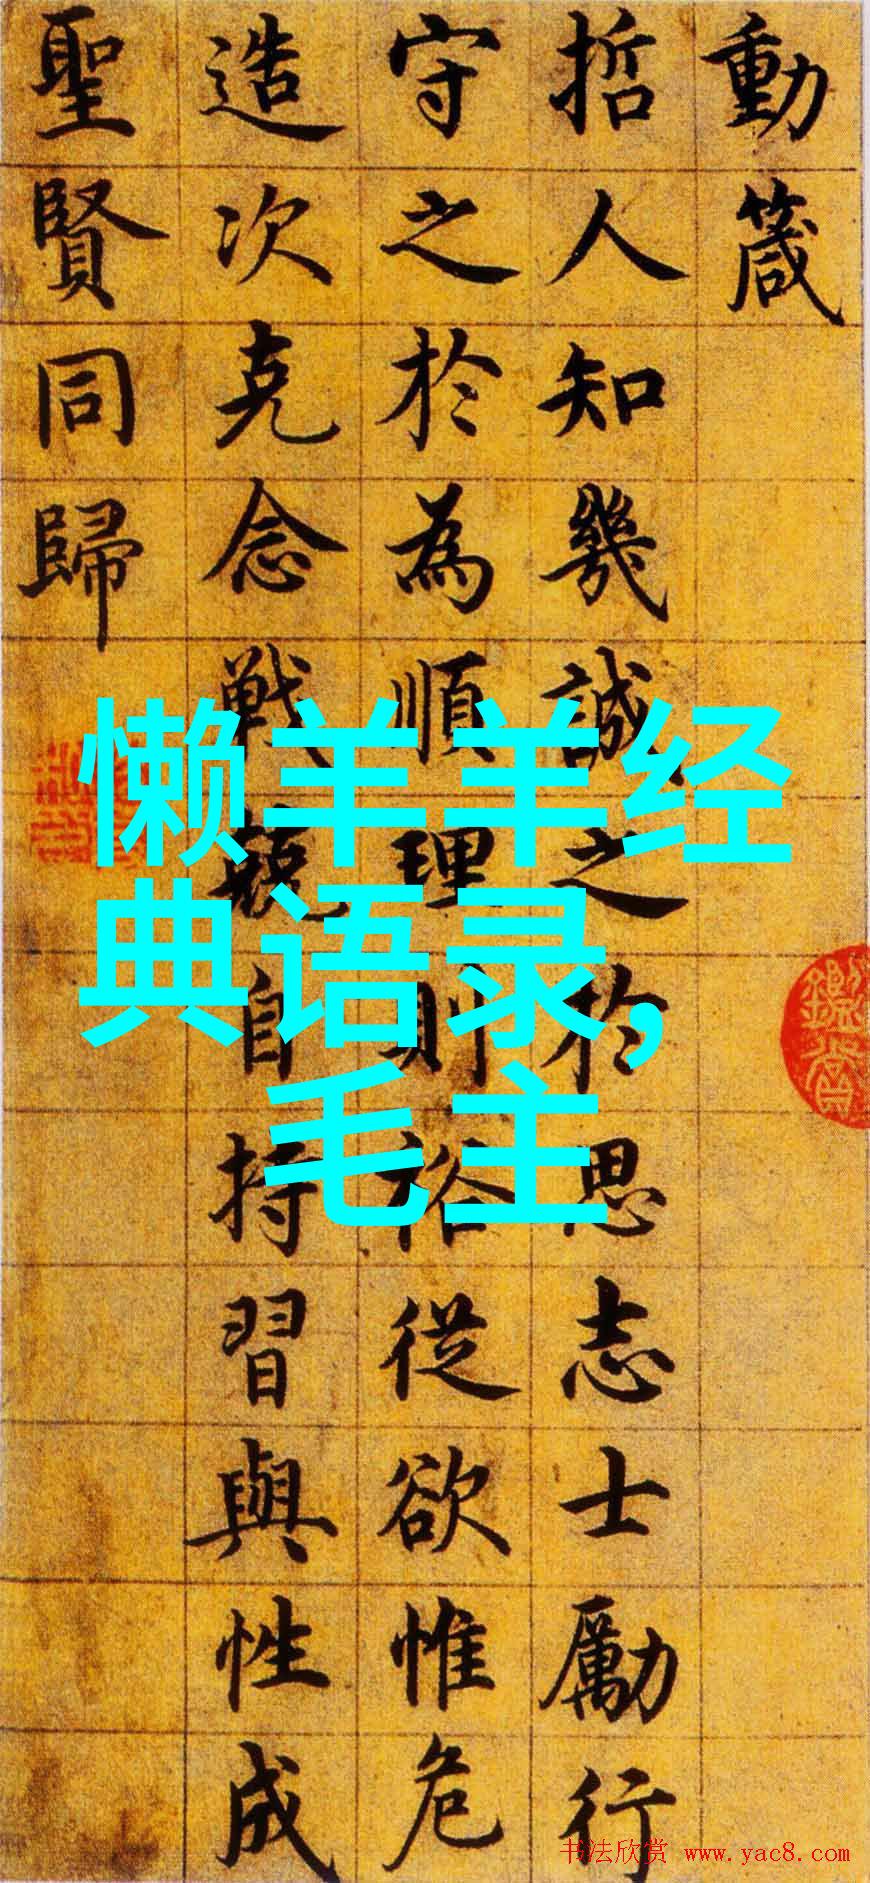 動箴
哲人知幾誠之於思志士勵行
守之於為順理則裕從欲惟危
造次克念戰兢自持習與性成
聖賢同歸
懒羊羊经
典语录,
毛主
书法欣赏 www.yac8.com